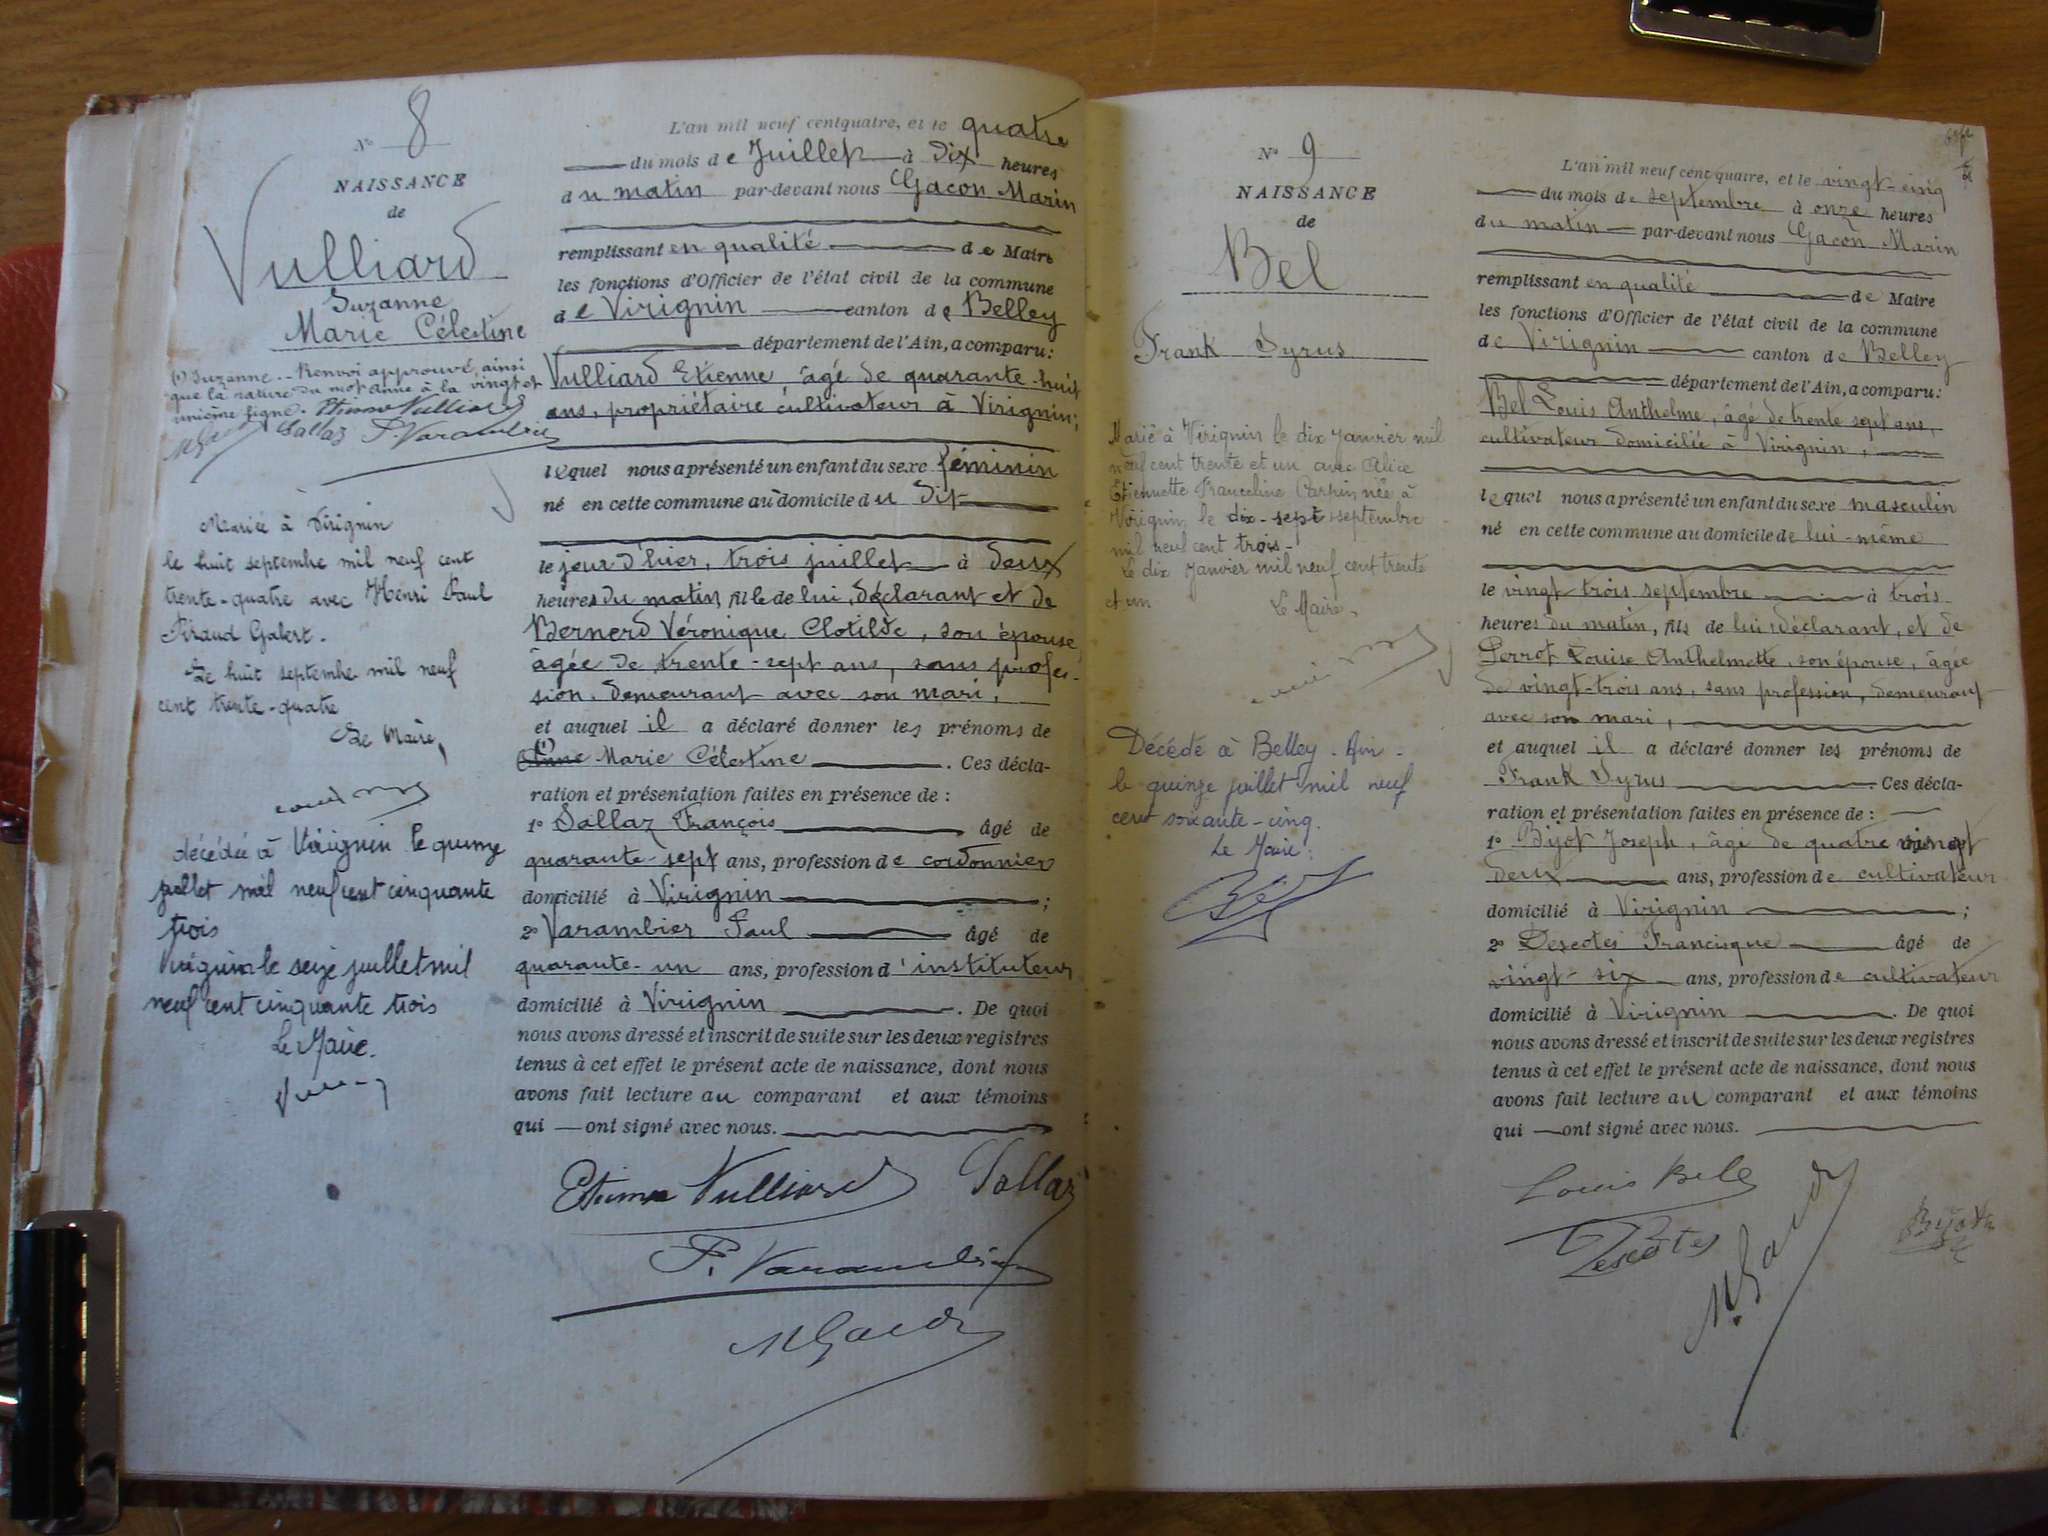 N° 8
NAISSANCE
de
Vulliard
Suzanne
Marie Célestine
(1) Suzanne. - Renvoi approuvé, ainsi
que la rature du mot anne à la vingt et
unième ligne. Etienne Vulliard
Sallaz P. Varambier
Mariée à Virignin
le huit septembre mil neuf cent
trente-quatre avec Henri Paul
Galert.
Le huit septembre mil neuf
cent trente-quatre
Le Maire,
décédée à Virignin le quinze
juillet mil neuf cent cinquante
trois
Virignin le seize juillet mil
neuf cent cinquante trois
Le Maire.
L'an mil neuf cent quatre, et le quatre
du mois de Juillet à dix heures
du matin par-devant nous Gacon Marin
remplissant en qualité de Maire
les fonctions d'Officier de l'état civil de la commune
de Virignin canton de Belley
département de l'Ain, a comparu:
Vulliard Etienne, âgé de quarante-huit
ans, propriétaire cultivateur à Virignin;
lequel nous a présenté un enfant du sexe féminin
né en cette commune au domicile du dit
le jour d'hier, trois juillet à deux
heures du matin, fille de lui, déclarant et de
Bernerd Véronique Clotilde, son épouse
âgée de trente-sept ans, sans profes-
sion, demeurant avec son mari,
et auquel il a déclaré donner les prénoms de
(1)
Anne Marie Célestine. Ces décla-
ration et présentation faites en présence de:
1° Sallaz François, âgé de
quarante-sept ans, profession de cordonnier
domicilié à Virignin;
2° Varambier Paul âgé de
quarante-un ans, profession d'instituteur
domicilié à Virignin. De quoi
nous avons dressé et inscrit de suite sur les deux registres
tenus à cet effet le présent acte de naissance, dont nous
avons fait lecture au comparant et aux témoins
qui ont signé avec nous.
Etienne Vulliard Sallaz
P. Varambier
M Gacon
N° 9
NAISSANCE
de
Bel
Frank Syrus
Marié à Virignin le dix Janvier mil
neuf cent trente et un avec Alice
Etiennette Franceline Carpin, née à
Virignin, le dix-sept septembre
mil neuf cent trois-
Le dix Janvier mil neuf cent trente
et un Le Maire,
Décédé à Belley - Ain -
le quinze juillet mil neuf
cent soixante-cinq.
Le Maire:
L'an mil neuf cent quatre, et le vingt-cinq
du mois de septembre à onze heures
du matin par-devant nous Gacon Marin
remplissant en qualité de Maire
les fonctions d'Officier de l'état civil de la commune
de Virignin canton de Belley
département de l'Ain, a comparu:
Bel Louis Anthelme, âgé de trente sept ans,
cultivateur domicilié à Virignin,
lequel nous a présenté un enfant du sexe masculin
né en cette commune au domicile de lui-même
le vingt trois septembre à trois
heures du matin, fils de lui, déclarant, et de
Perrot Louise Anthelmette, son épouse, âgée
de vingt-trois ans, sans profession, demeurant
avec son mari,
et auquel il a déclaré donner les prénoms de
Frank Syrus. Ces décla-
ration et présentation faites en présence de:
1° Bijot Joseph, âgé de quatre vingt
deux ans, profession de cultivateur
domicilié à Virignin;
2° Descotes Francisque âgé de
vingt-six ans, profession de cultivateur
domicilié à Virignin. De quoi
nous avons dressé et inscrit de suite sur les deux registres
tenus à cet effet le présent acte de naissance, dont nous
avons fait lecture au comparant et aux témoins
qui ont signé avec nous.
Louis Bel
Descotes M. Gacon Bijot